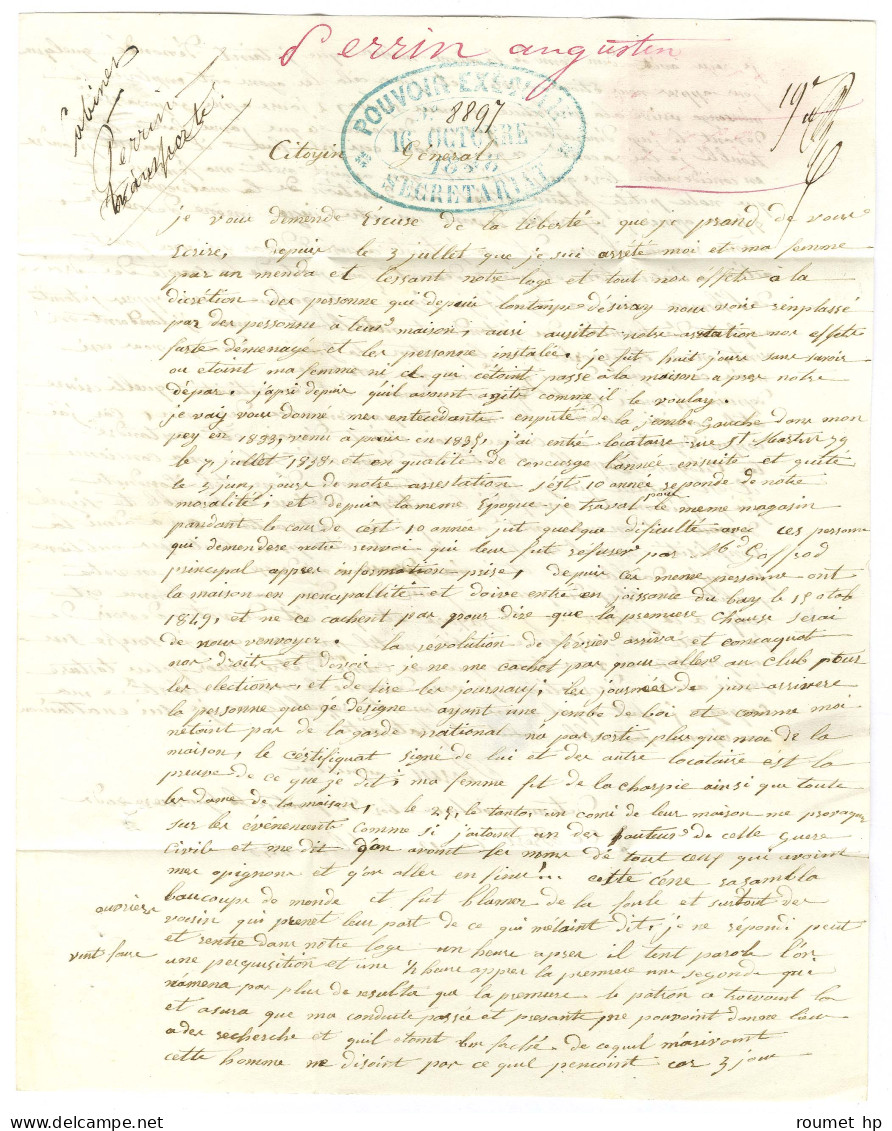 Perrin augusten
Cabinet
Perrin
transporté
POUVOIR EXÉCUTIF
No 8897
16 OCTOBRE
1848
SECRETARIAT
19
Citoyin Général
je vous demende Escuse de la leberté que je prand de vous
Ecrire, depuis le 3 juillet que je sui arrété moi et ma femme
par un menda et lessant notre loge et tout nos effets à la
dicrétion des personne qui depuis lontanps désiray nous voire renplassé
par des personne à leurs maison, ausi ausitot notre arestation nos effets
furte démenagé et les personne instalée. je fut huit jours sans savoir
ou etoint ma femme ni ce qui cétoint passé à la maison apres notre
dépar. j'apri depuis qu'il avaint agité comme il le voulay.
je vay vous donné mes entecedante enputé de la jembe Gauche dans mon
pey en 1833, venu à paris en 1835, j'ai entré locataire rue St Martin 79
le 7 juillet 1838, et en qualité de concierge l'année ensuite et quité
le 5 jun, jours de notre arrestation, c'est 10 année reponde de notre
moralité; et depuis la meme Epoque je traval pour le meme magasin
pandant le cour de c'est 10 année jut quelque dificulté avec ces personne
qui demendere notre renvoi qui leur fut refuser par Md Gaffrod
principal appres information prise, depuis ces meme personne ont
la maison en principallité et doive entré en joissance du bay le 15 otob
1849, et ne ce cachent par pour dire que la premiere chause serai
de nous renvoyer. la révolution de février arriva et concaquot
nos droits et devoir je ne me cachot pas pour aller au club pour
les elections, et de lire les journaux, les journées de jun arrivere
la personne que je désigne ayant une jembe de boi et comme moi
nétoint pas de la garde national na pas sorté plus que moi de la
maison, le certifiquat signé de lui et des autre locataire est la
preuve de ce que je dit; ma femme fit de la charpie ainsi que toute
les dame de la maison, le 25, le tantot, un comi de leur maison me provaqua
sur les événements comme si j'aitoint un des hauteurs de cette Guere
Civile et me dit q'on avoint les mme de tout ceux qui avoint
mes opignons et q'on aller en finir!... cette céne rasambla
beaucoup de monde et fut blamer de la foule et surtout des
ouvriers
voisin qui prenet leur part de ce qui m'étaint dit; je ne répondi peut
et rentré dans nôtre loge un heure apres il
vint faire
une perquisition et une ½ heure appres la premiere une segonde qui
n'amena pas plus de resultà que la premiere le patron
et asura que ma conduite passée et presante ne pouvoint donne lieu
a des recherche et quil etoint bien faché de cequi m'arivoint
cette homme ne disoint pas ce quel pencoint car 3 jour
www.delcampe.net
roumet hp